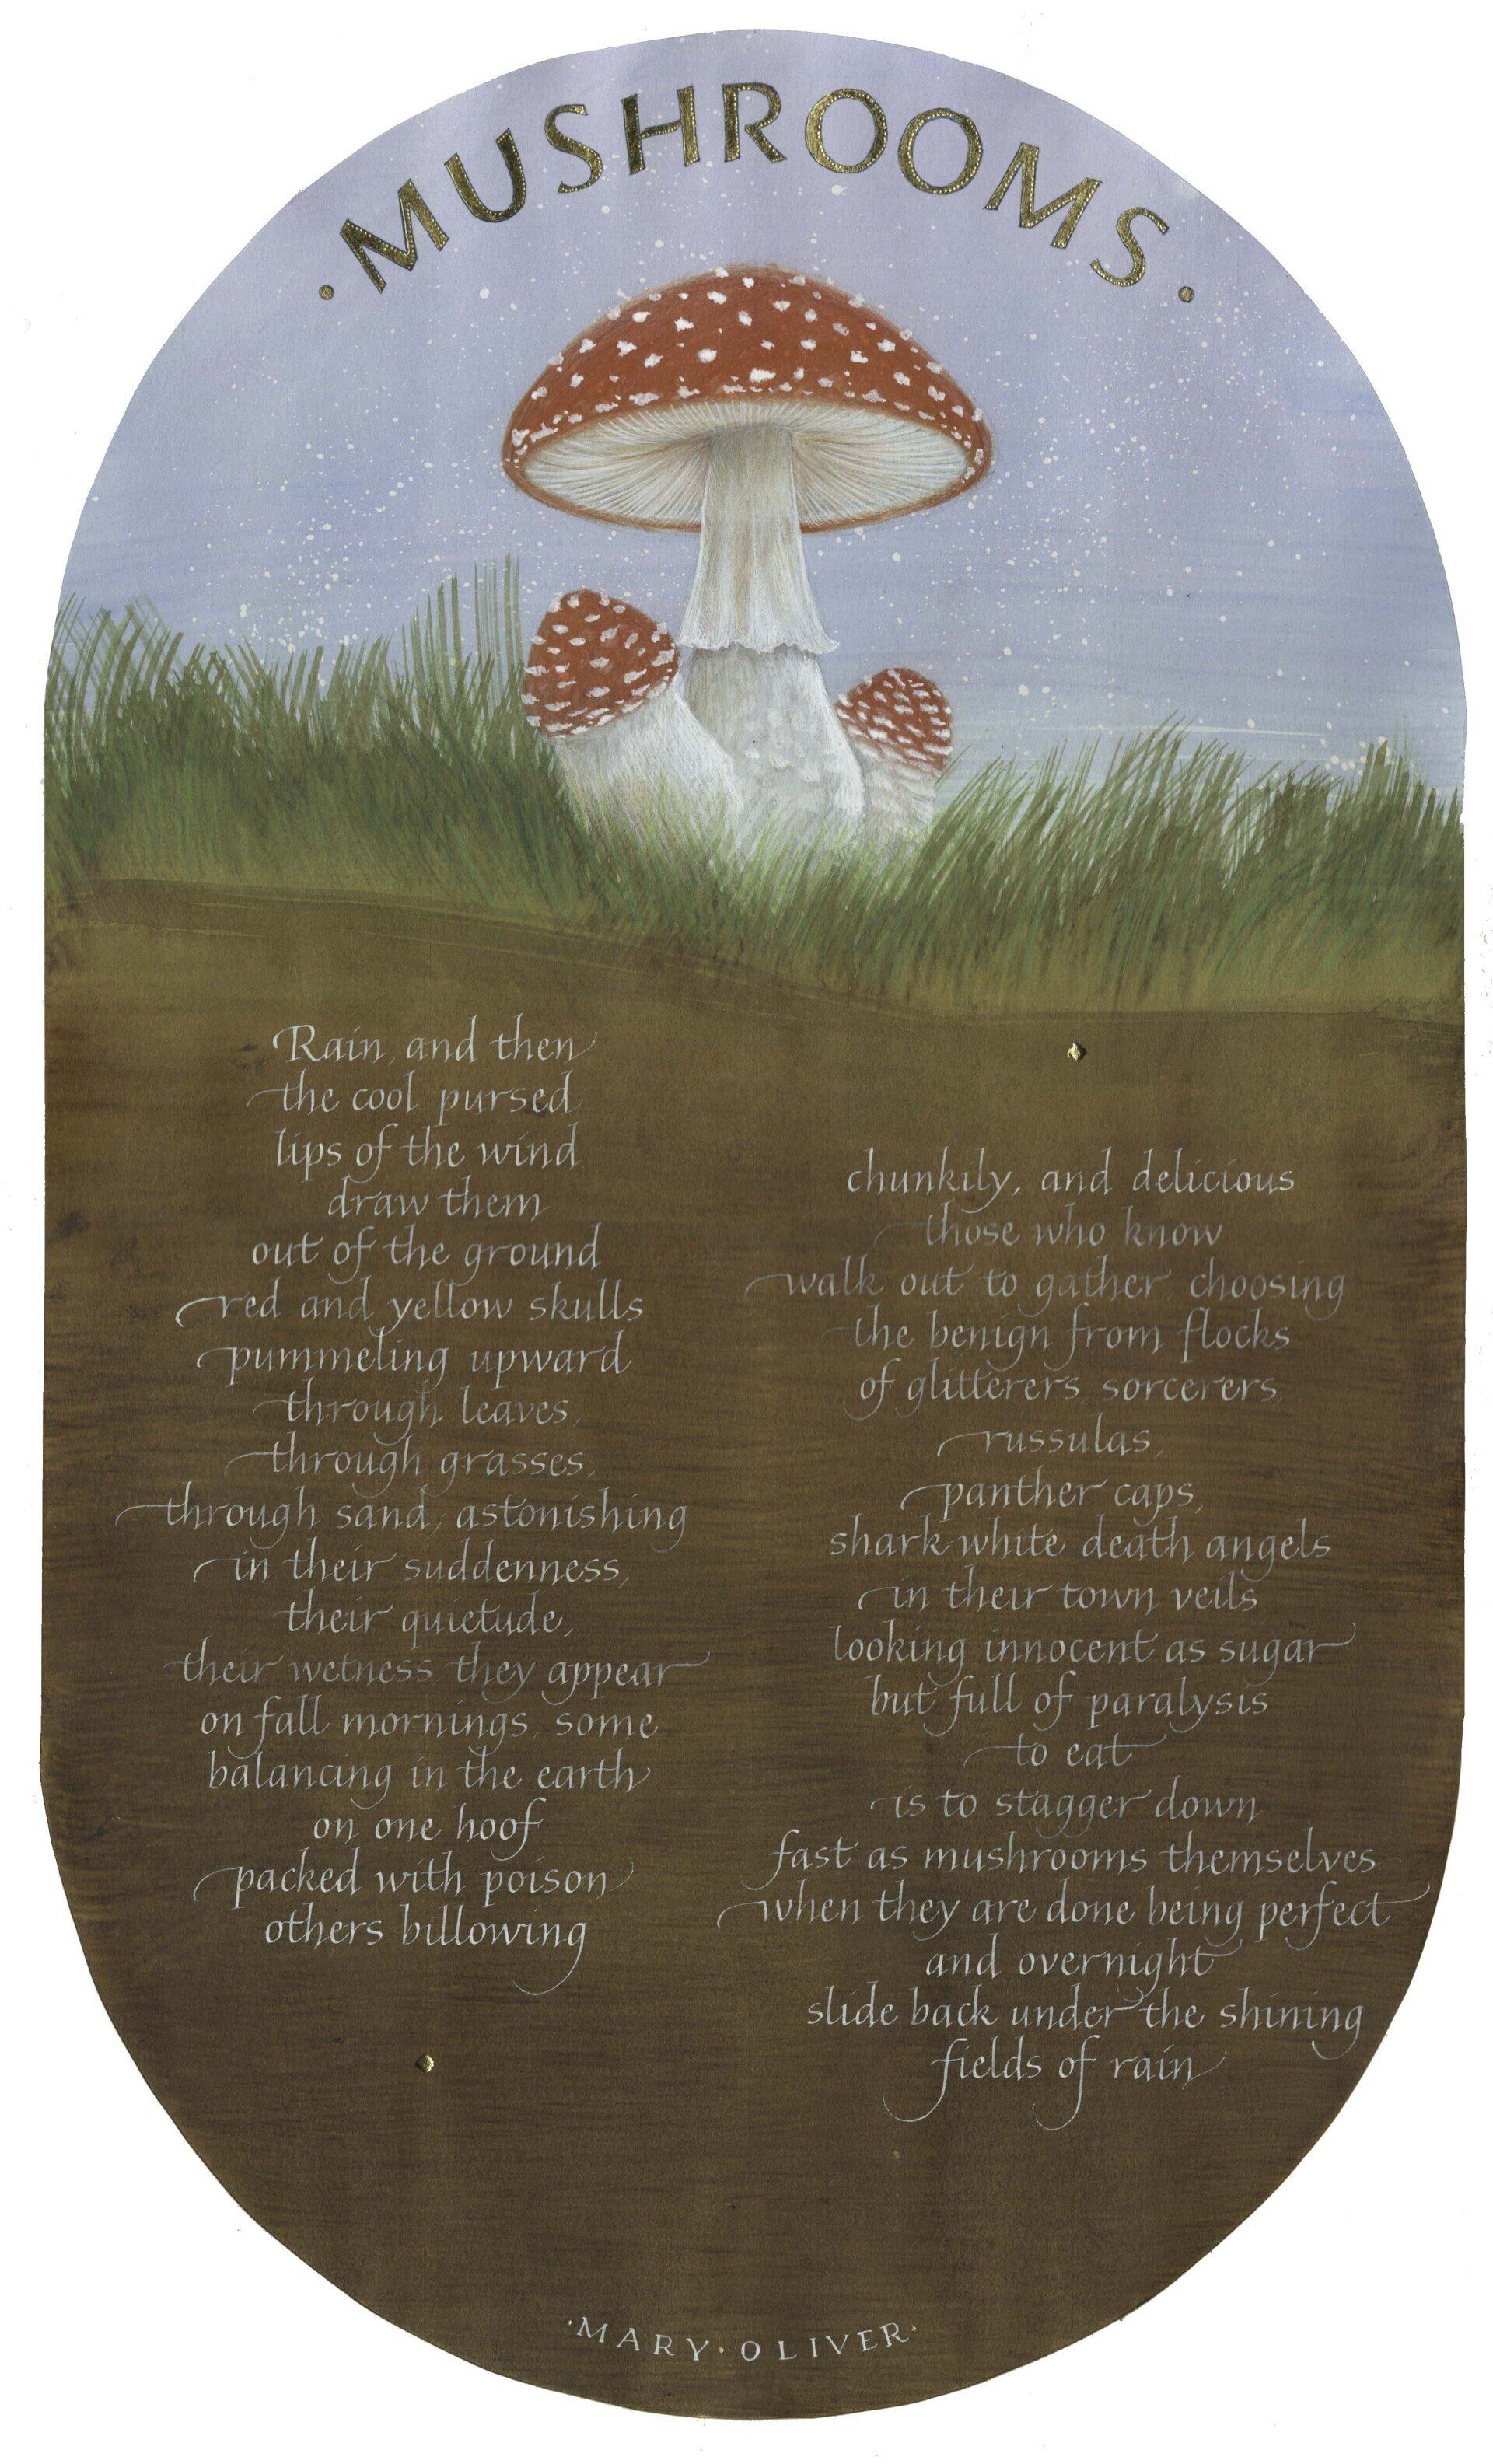 ·MUSHROOMS·
Rain, and then
the cool pursed
lips of the wind
draw them
out of the ground
red and yellow skulls
pummeling upward
through leaves,
through grasses,
through sand, astonishing
in their suddenness,
their quietude,
their wetness, they appear
on fall mornings, some
balancing in the earth
on one hoof
packed with poison
others billowing
chunkily, and delicious
those who know
walk out to gather, choosing
the benign from flocks
of glitterers, sorcerers,
russulas,
panther caps,
shark white death angels
in their town veils
looking innocent as sugar
but full of paralysis
to eat
is to stagger down
fast as mushrooms themselves
when they are done being perfect
and overnight
slide back under the shining
fields of rain
·MARY·OLIVER·